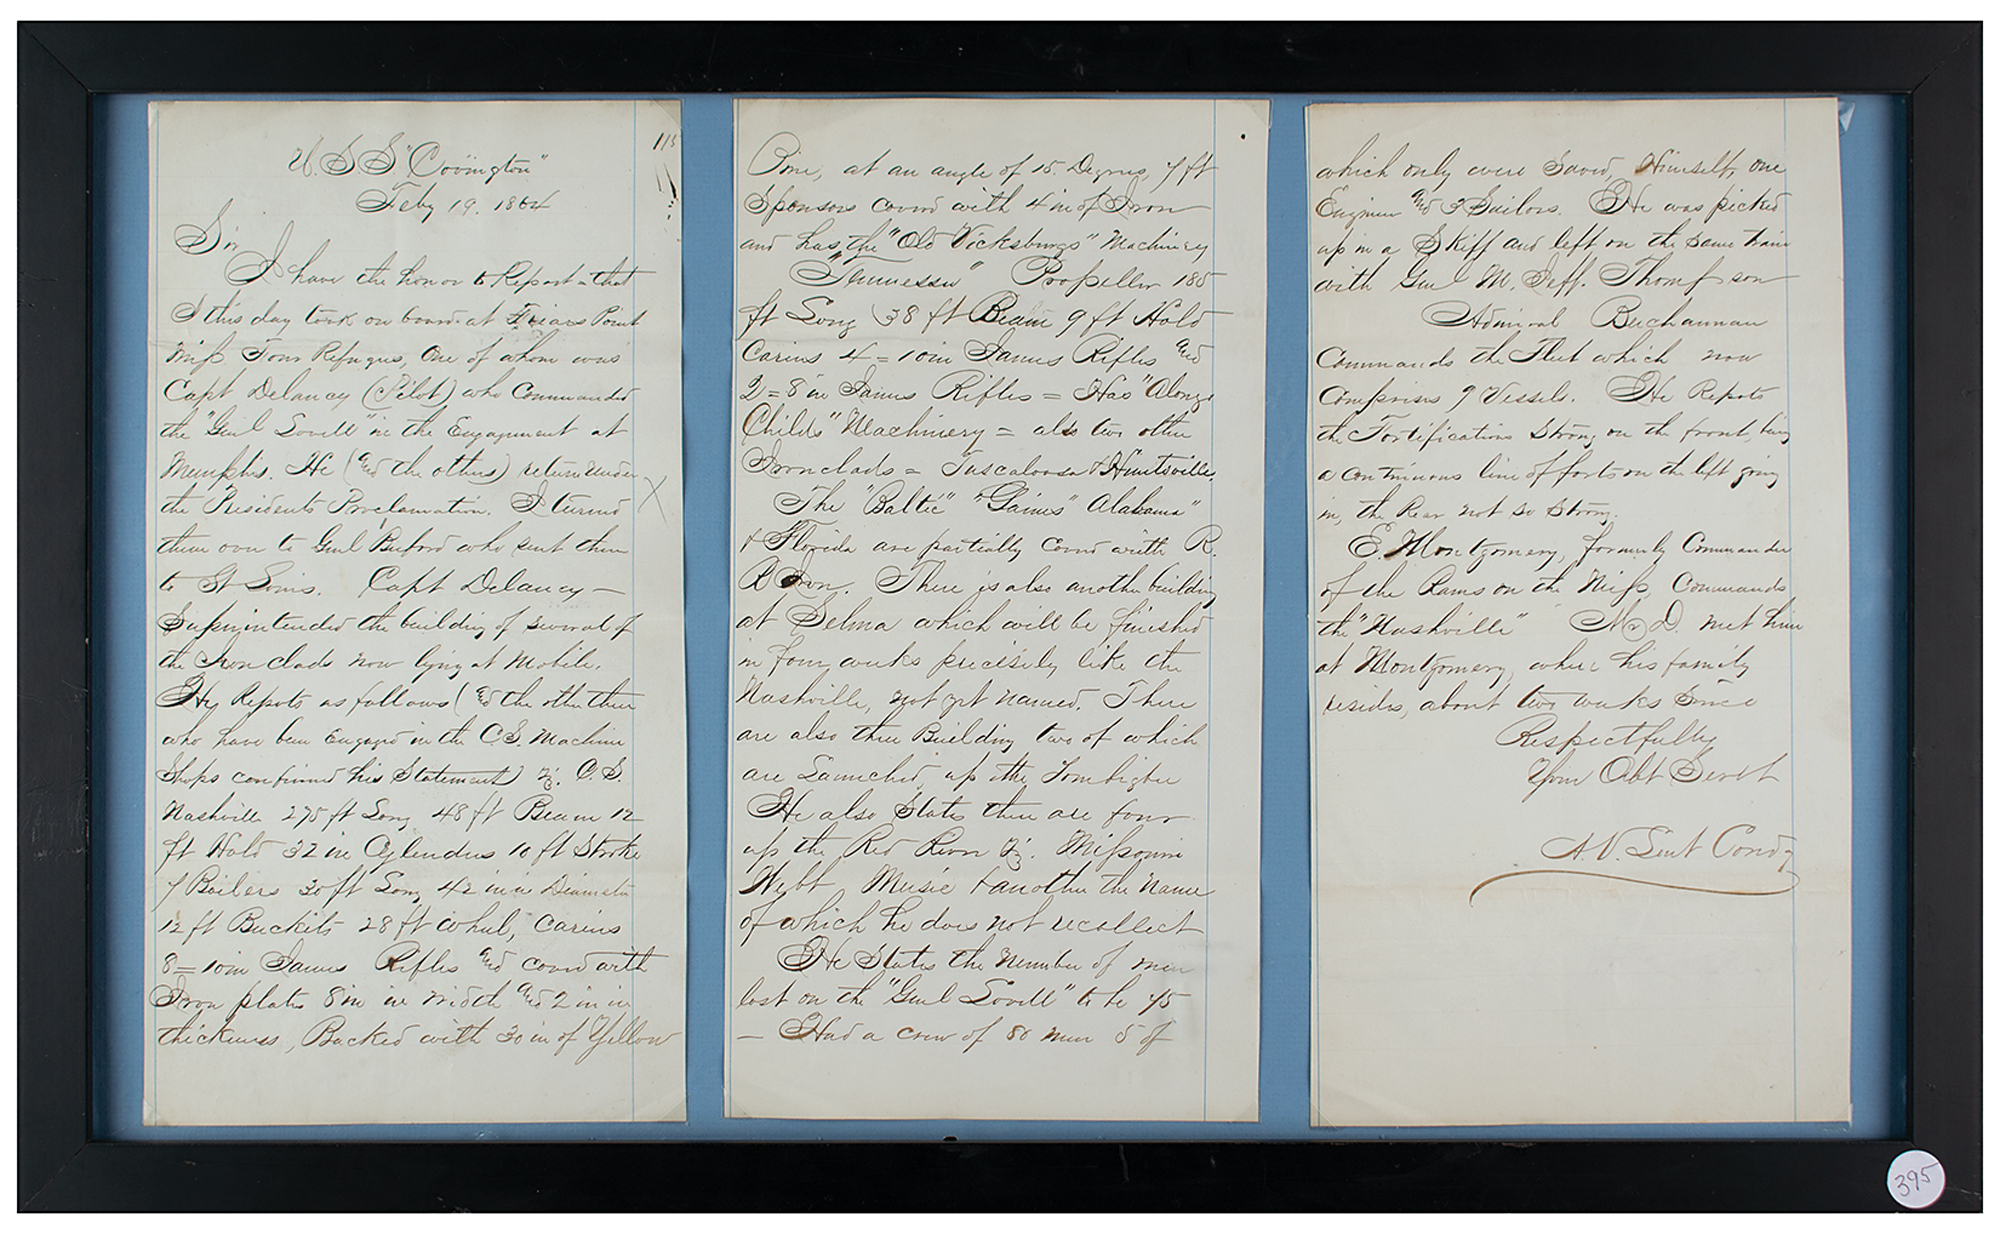 113
U. S. S. "Covington"
Feby 19. 1864
Sir
I have the honor to Report that
I this day took on board at Friars Point
Miss. Four Refugees, One of whom was
Capt Delancy (Pilot) who Commanded
the "Genl Lovell" in the Engagement at
Memphis. He (and the others) return under
the Presidents Proclamation. I turned
them over to Genl Buford who sent them
to St Louis. Capt Delancy —
Superintended the building of several of
the Iron clads now lying at Mobile.
He Reports as follows (and the other three
who have been Engaged in the C.S. Machine
Shops confirmed his Statement) viz. C. S.
Nashville 275 ft Long 48 ft Beam 12
ft Hold 32 in Cylenders 10 ft Stroke
7 Boilers 30 ft Long 42 in in Diameter
12 ft Buckets 28 ft wheel, Carries
8 = 10 in James Rifles and coverd with
Iron plates 8 in in width and 2 in in
thickness, Backed with 30 in of Yellow
Pine, at an angle of 15. Degrees, 7 ft
Sponsors coverd with 4 in of Iron
and has the "Old Vicksburgs" Machinery
"Tennessee" Propeller 185
ft Long 38 ft Beam 9 ft Hold
Carries 4 = 10 in James Rifles and
2 = 8 in James Rifles = Has "Alonzo
Childs" Machinery = also two other
Ironclads = Tuscaloosa & Huntsville.
The "Baltic" "Gaines" Alabama"
& Florida are partially coverd with R.
R Iron. There is also another building
at Selma which will be finished
in four weeks precisely like the
Nashville, not yet named. There
are also three Building two of which
are Launched, up the Tombigbee
He also States there are four
up the Red River viz. Missouri
Webb Music & another the name
of which he does not recollect
He States the Number of men
lost on the "Genl Lovell" to be 75
— Had a crew of 80 men 5 of
which only were Saved, Himself, one
Engineer and 3 Sailors. He was picked
up in a Skiff and left on the same train
with Genl M. Jeff. Thompson
Admiral Buchannan
Commands the Fleet which now
Comprises 9 Vessels. He Reports
the Fortifications Strong on the front, being
a continuous line of forts on the left going
in, the Rear not so Strong.
E. Montgomery, formerly Commander
of the Rams on the Miss, Commands
the "Nashville" Mr D. met him
at Montgomery, where his family
resides, about two weeks since
Respectfully
Your Obt Servt
A. V. Lieut Comdg
395